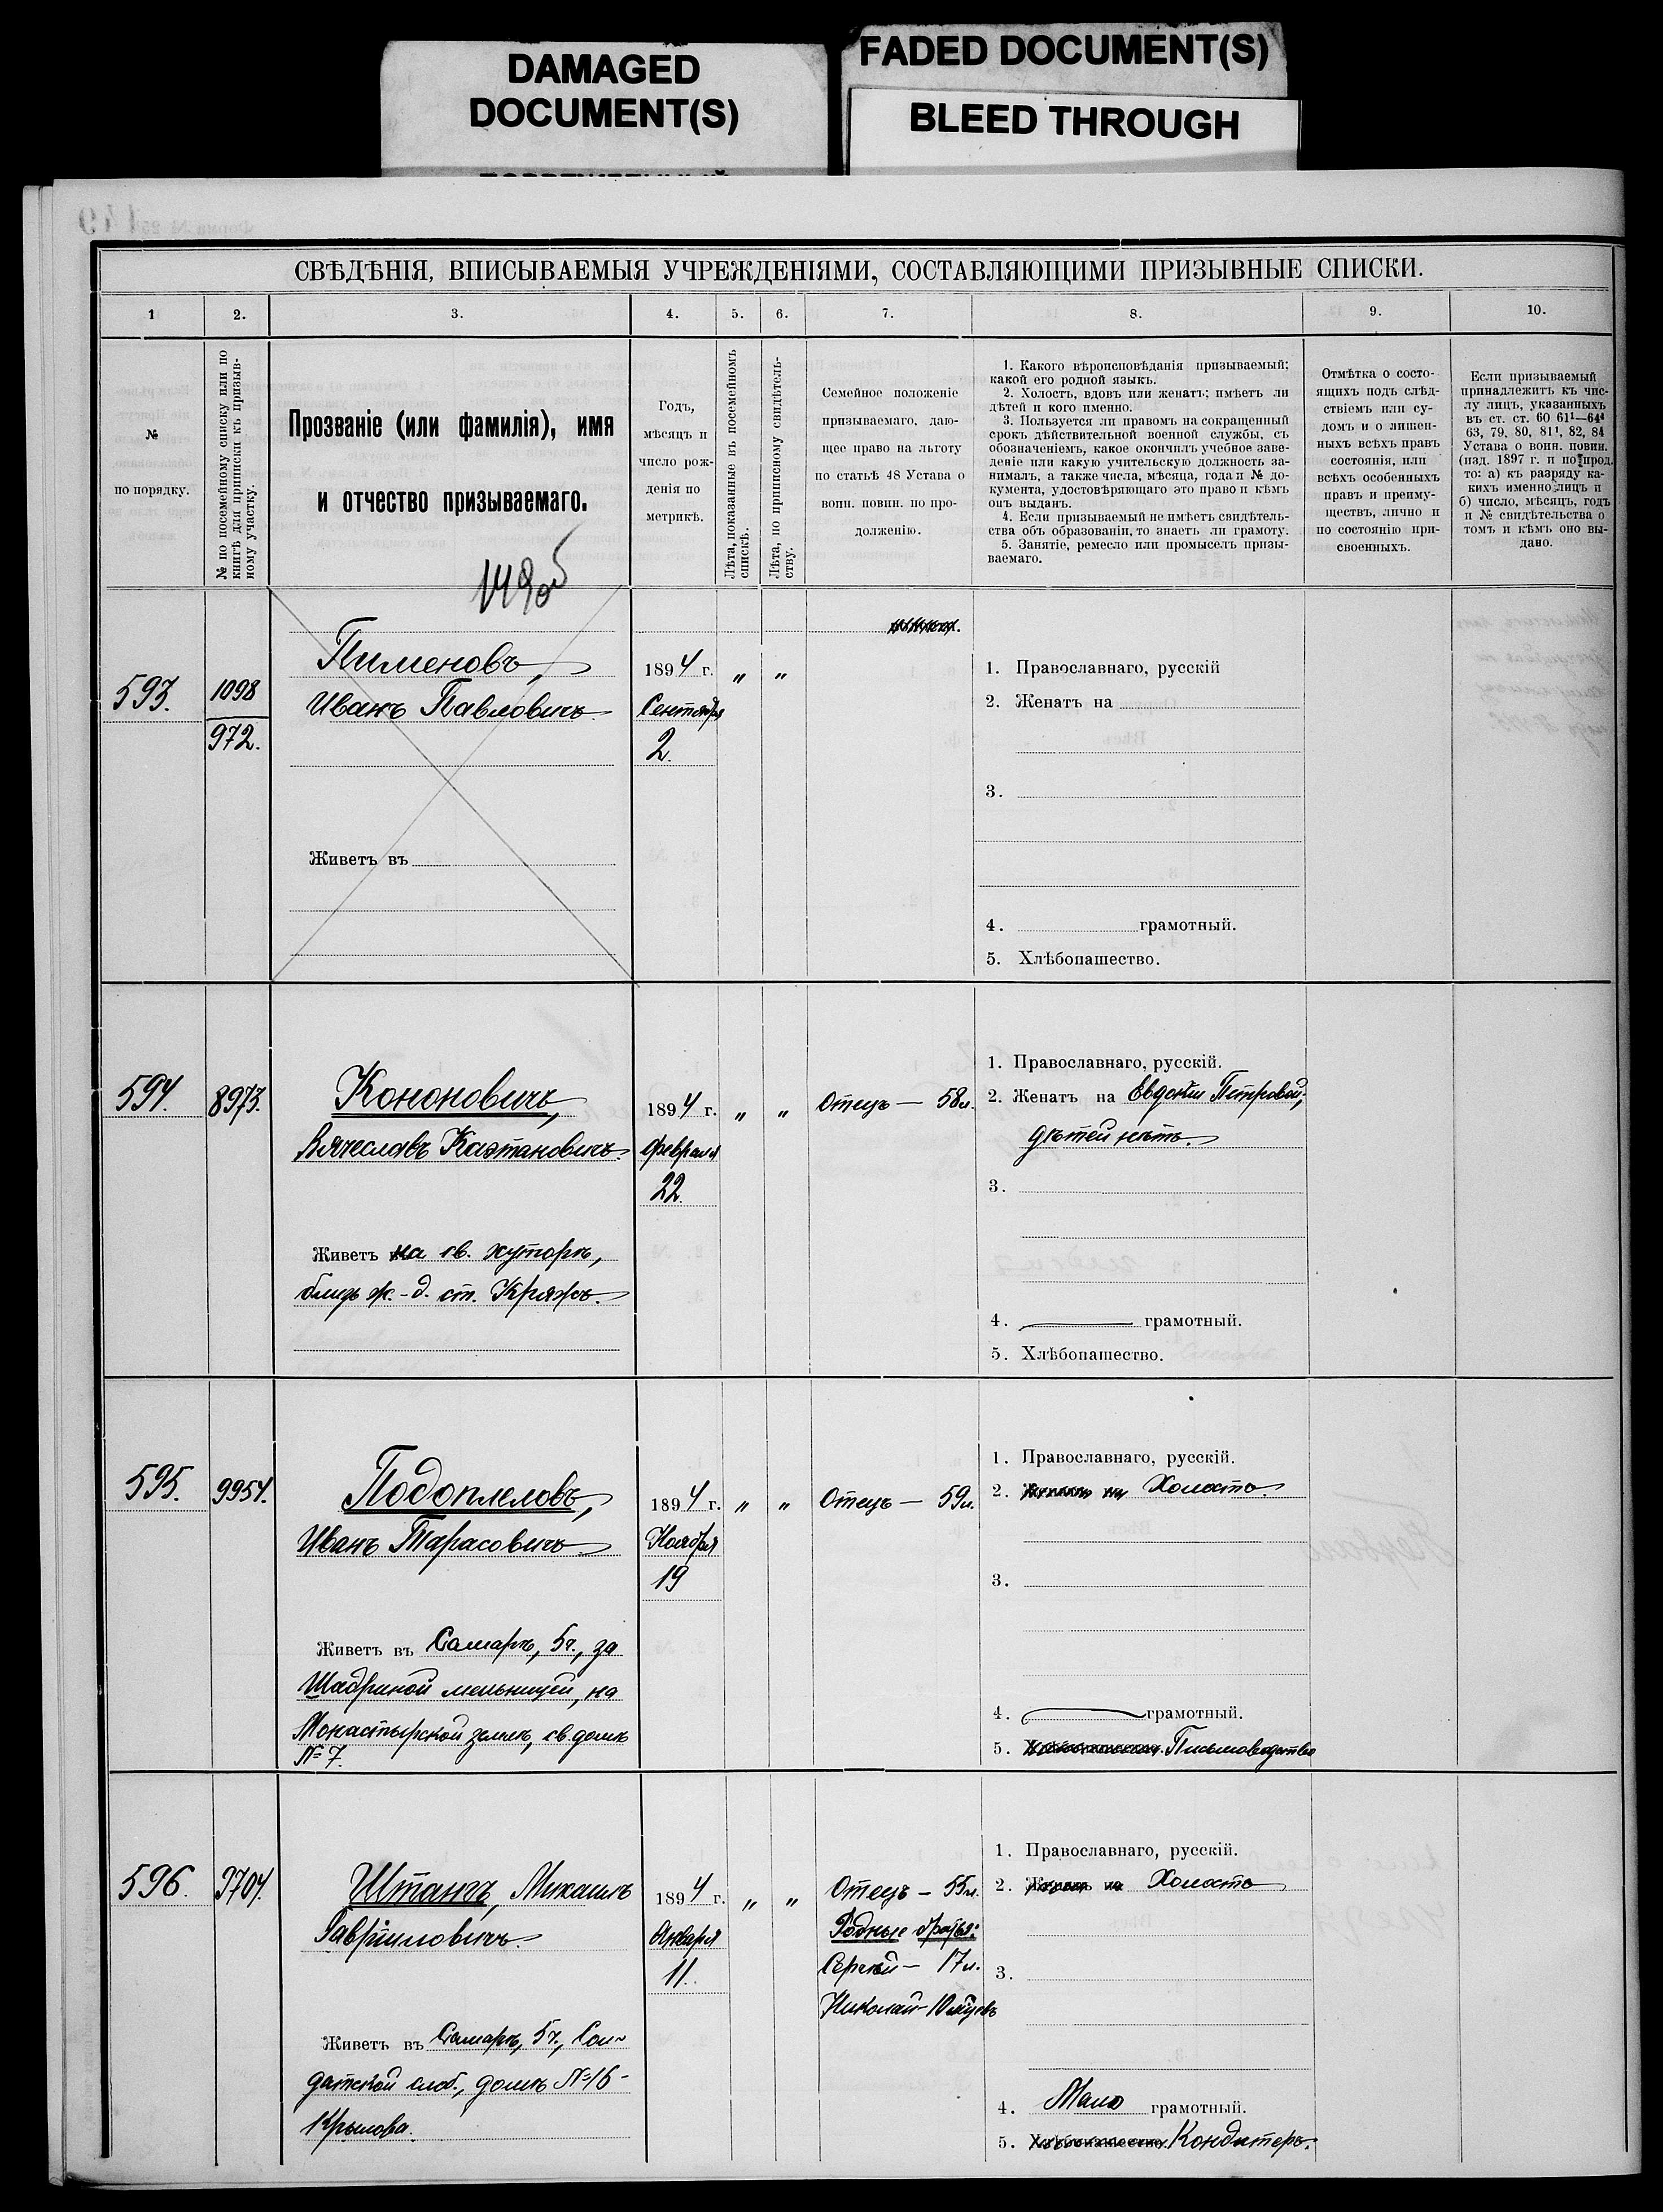 DAMAGED
DOCUMENT(S)
FADED DOCUMENT(S)
BLEED THROUGH
СВѢДѢНІЯ, ВПИСЫВАЕМЫЯ УЧРЕЖДЕНІЯМИ, СОСТАВЛЯЮЩИМИ ПРИЗЫВНЫЕ СПИСКИ.
1
2.
3.
4.
5.
6.
7.
8.
9.
10.
№
по порядку.
№ по посемейному списку или по
книгѣ для приписки къ призыв-
ному участку.
Прозваніе (или фамилія), имя
и отчество призываемаго.
Годъ,
мѣсяцъ и
число рож-
денія по
метрикѣ.
Лѣта, показанныя въ посемейномъ
спискѣ.
Лѣта, по приписному свидѣтель-
ству.
Семейное положеніе
призываемаго, даю-
щее право на льготу
по статьѣ 48 Устава о
воин. повин. по про-
долженію.
1. Какого вѣроисповѣданія призываемый;
какой его родной языкъ.
2. Холостъ, вдовъ или женатъ; имѣетъ ли
дѣтей и кого именно.
3. Пользуется ли правомъ на сокращенный
срокъ дѣйствительной военной службы, съ
обозначеніемъ, какое окончилъ учебное заве-
деніе или какую учительскую должность за-
нималъ, а также числа, мѣсяца, года и № до-
кумента, удостовѣряющаго это право и кѣмъ
онъ выданъ.
4. Если призываемый не имѣетъ свидѣтель-
ства объ образованіи, то знаетъ ли грамоту.
5. Занятіе, ремесло или промыселъ призы-
ваемаго.
Отмѣтка о состо-
ящихъ подъ слѣд-
ствіемъ или су-
домъ и о лишен-
ныхъ всѣхъ правъ
состоянія, или
всѣхъ особенныхъ
правъ и преиму-
ществъ, лично и
по состоянію при-
своенныхъ.
Если призываемый
принадлежитъ къ чис-
лу лицъ, указанныхъ
въ ст. ст. 60 61¹—64⁴
63, 79, 80, 81¹, 82, 84
Устава о воин. повин.
(изд. 1897 г. и по прод.
то: а) къ разряду ка-
кихъ именно лицъ и
б) число, мѣсяцъ, годъ
и № свидѣтельства о
томъ и кѣмъ оно вы-
дано.
149об
593.
1098
972.
Пименовъ,
Иванъ Павловичъ.
Живетъ въ
1894 г.
Сентября
2.
„ „
1. Православнаго, русскій
2. Женатъ на
3.
4. грамотный.
5. Хлѣбопашество.
594.
8973.
Кононовичъ,
Вячеславъ Каэтановичъ.
Живетъ на св. хуторѣ,
близь ж.-д. ст. Кряжъ.
1894 г.
Февраля
22.
„ „
Отецъ — 58 л.
1. Православнаго, русскій.
2. Женатъ на Евдокіи Петровой,
дѣтей нѣтъ.
3.
4. грамотный.
5. Хлѣбопашество.
595.
9954.
Подоплеловъ,
Иванъ Тарасовичъ.
Живетъ въ Самарѣ, 5 ч., за
Шадриной мельницей, на
Монастырской землѣ, св. домъ
№ 7.
1894 г.
Ноября
19
„ „
Отецъ — 59 л.
1. Православнаго, русскій.
2. Женатъ на Холостъ.
3.
4. грамотный.
5. Хлѣбопашество. Письмоводство
596.
9704.
Штангъ, Михаилъ
Гавріиловичъ.
Живетъ въ Самарѣ, 5 ч., Сол-
датской слоб., домъ № 16-
Крылова.
1894 г.
Января
11.
„ „
Отецъ — 55 л.
Родные братья:
Сергѣй — 17 л.
Николай — 10 мѣсяцевъ
1. Православнаго, русскій.
2. Женатъ на Холостъ
3.
4. Мало грамотный.
5. Хлѣбопашество. Кондитеръ.